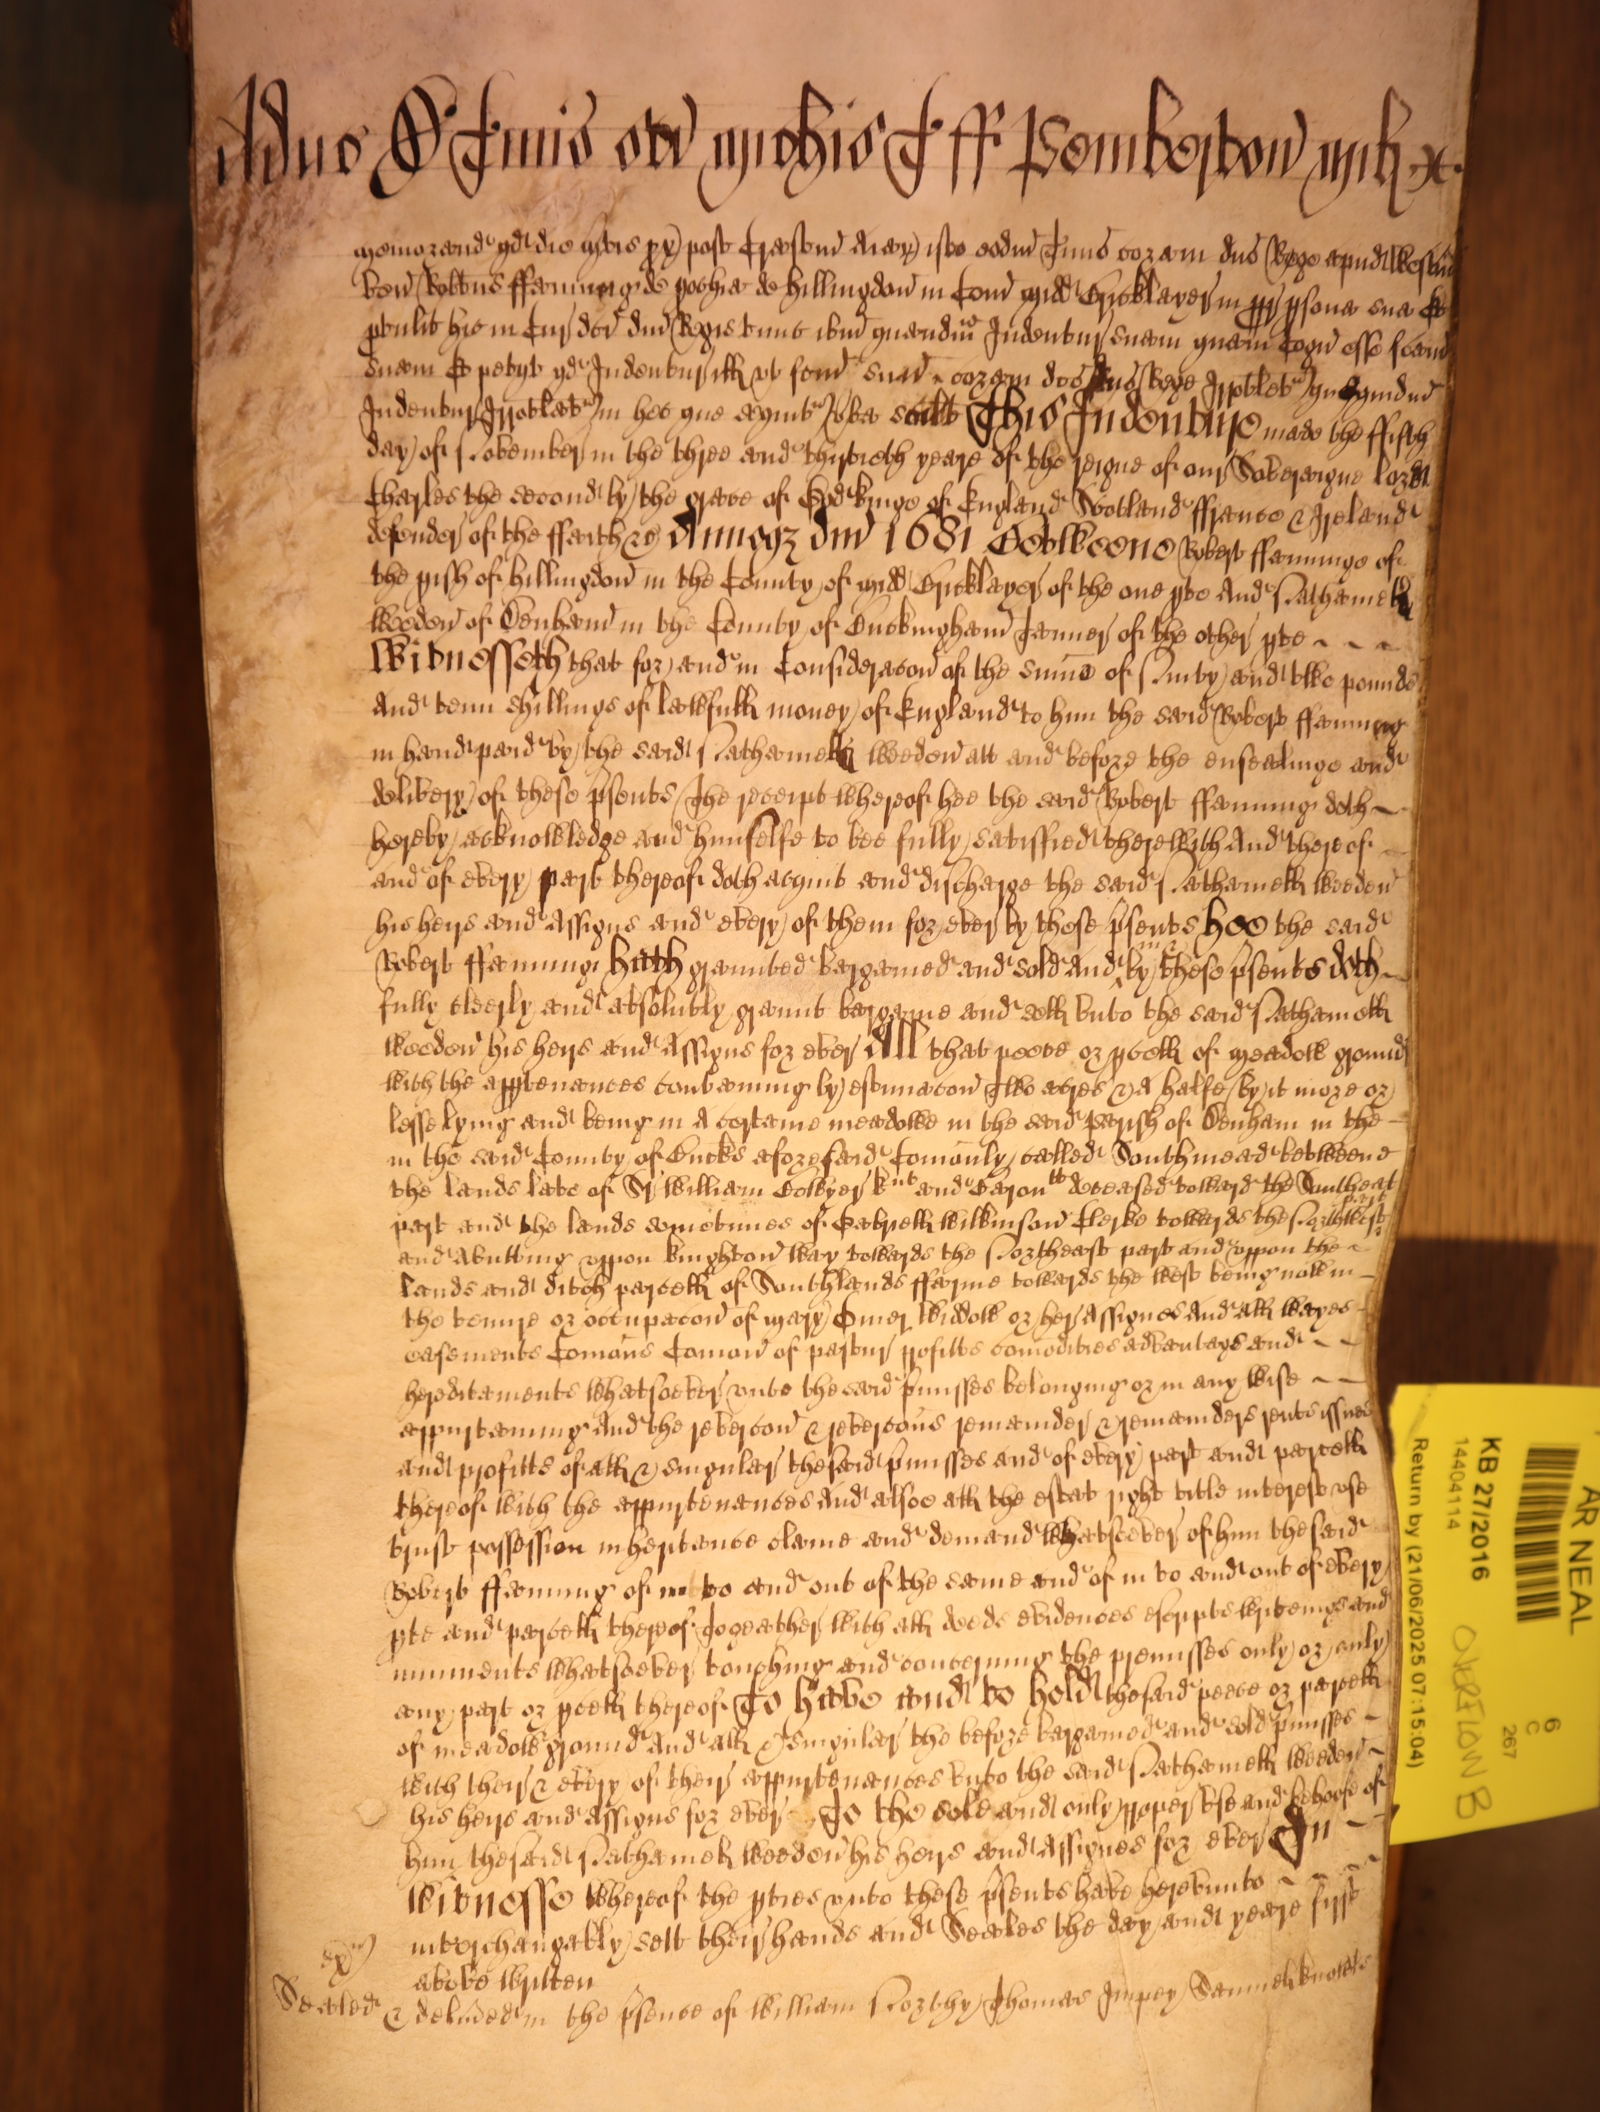 Adhuc De Termino sci Michis T ff Pemberton Milt &c.
Memorand qd die Martis px post Crastin Aiar isto eodm Termino coram dno Rege apud Westm
ven Robtus ffanninge de pochia de Hillingdon in Com Midd Bricklayer in ppr psona sua Et
ptulit hic in Cur dci dni Regis tunc ibm quandm Indentur suam quam Cogn esse fcam
suam Et petijt qd Indentur ill ut fcm suu coram dco dno Rege Irrotlet que quidm
Indentur Irrotlat in hec que sequntr Verba scilt This Indenture made the ffifth
day of November in the three and thirtieth yeare of the reigne of our Soveraigne Lord
Charles the second by the grace of God kinge of England Scotland ffrance & Ireland
defender of the ffaith &c Annoqz dni 1681 Betweene Robert ffanninge of
the pish of Hillingdon in the County of Midd Bricklayer of the one pte And Nathaniell
Weeden of Denham in the County of Buckingham Tanner of the other pte
Witnesseth that for and in Consideracon of the sume of Ninty and two pounds
And tenn shillings of lawfull money of England to him the said Robert ffanning
in hand paid by the said Nathaniell Weeden att and before the ensealinge and
delivery of these psents The receipt whereof hee the said Robert ffanning doth
hereby acknowledge and himselfe to bee fully satisfied therewith And thereof
and of every part thereof doth acquit and discharge the said Nathaniell Weeden
his heirs and Assigns and every of them for ever by these psents Hee the said
Robert ffanninge Hath graunted bargained and sold And by these psents doth
fully cleerly and absolutly graunt bargaine and sell unto the said Nathaniell
Weeden his heirs and Assigns for ever All that peece or pcell of meadow ground
with the apptenances containing by estimacon Two acres & A halfe by it more or
lesse lying and being in A certaine meadowe in the said Parish of Denham in the
in the said County of Bucks aforesaid Comonly called Southmead betweene
the lands late of Sr William Bowyer knt and Baront deceased toward the Southeast
part and the lands sometimes of Gabriell Wilkinson Clerke towards the Northwest
part
and Abutting uppon knighton Way towards the Northeast part and uppon the
lands and ditch parcell of Southlands ffarme towards the West being now in
the tenure or occupacon of Mary Widdow or her Assignes And all wayes
easements Comons Comon of pastur profitts comodities advantags and
hereditaments whatsoever unto the said pmisses belonging or in any wise
appurtaining And the revercon & revercons remainder & remainders rents issues
and profitts of all & singular the said pmisses and of every part and parcell
thereof with the appurtenances And alsoe all the estat right title interest use
trust possession inheritance claime and demand whatsoever of him the said
Robert ffanning of in to and out of the same and of in to and out of every
pte and parcell thereof Togeather with all deeds evidences escripts writeings and
miniments whatsoever touching and concerning the premisses only or only
any part or pcell thereof To have and to hold the said peece or parcell
of meadow ground And all & singular the before bargained and sold pmisses
with their & every of their appurtenances unto the said Nathaniell Weeden
his heirs and Assigns for ever To the sole and only proper use and behoofe of
him the said Nathaniell Weeden his heirs and Assignes for ever In
Witnesse whereof the pties unto these psents have hereunto
interchangably sett their hands and Seales the day and yeare first
above written
exr
Sealed & delivered in the psence of William Northy Thomas Impey Samuell knowles
AR NEAL
KB 27/2016
14404114
6
C
267
OVERFLOW B
Return by (21/06/2025 07:15:04)